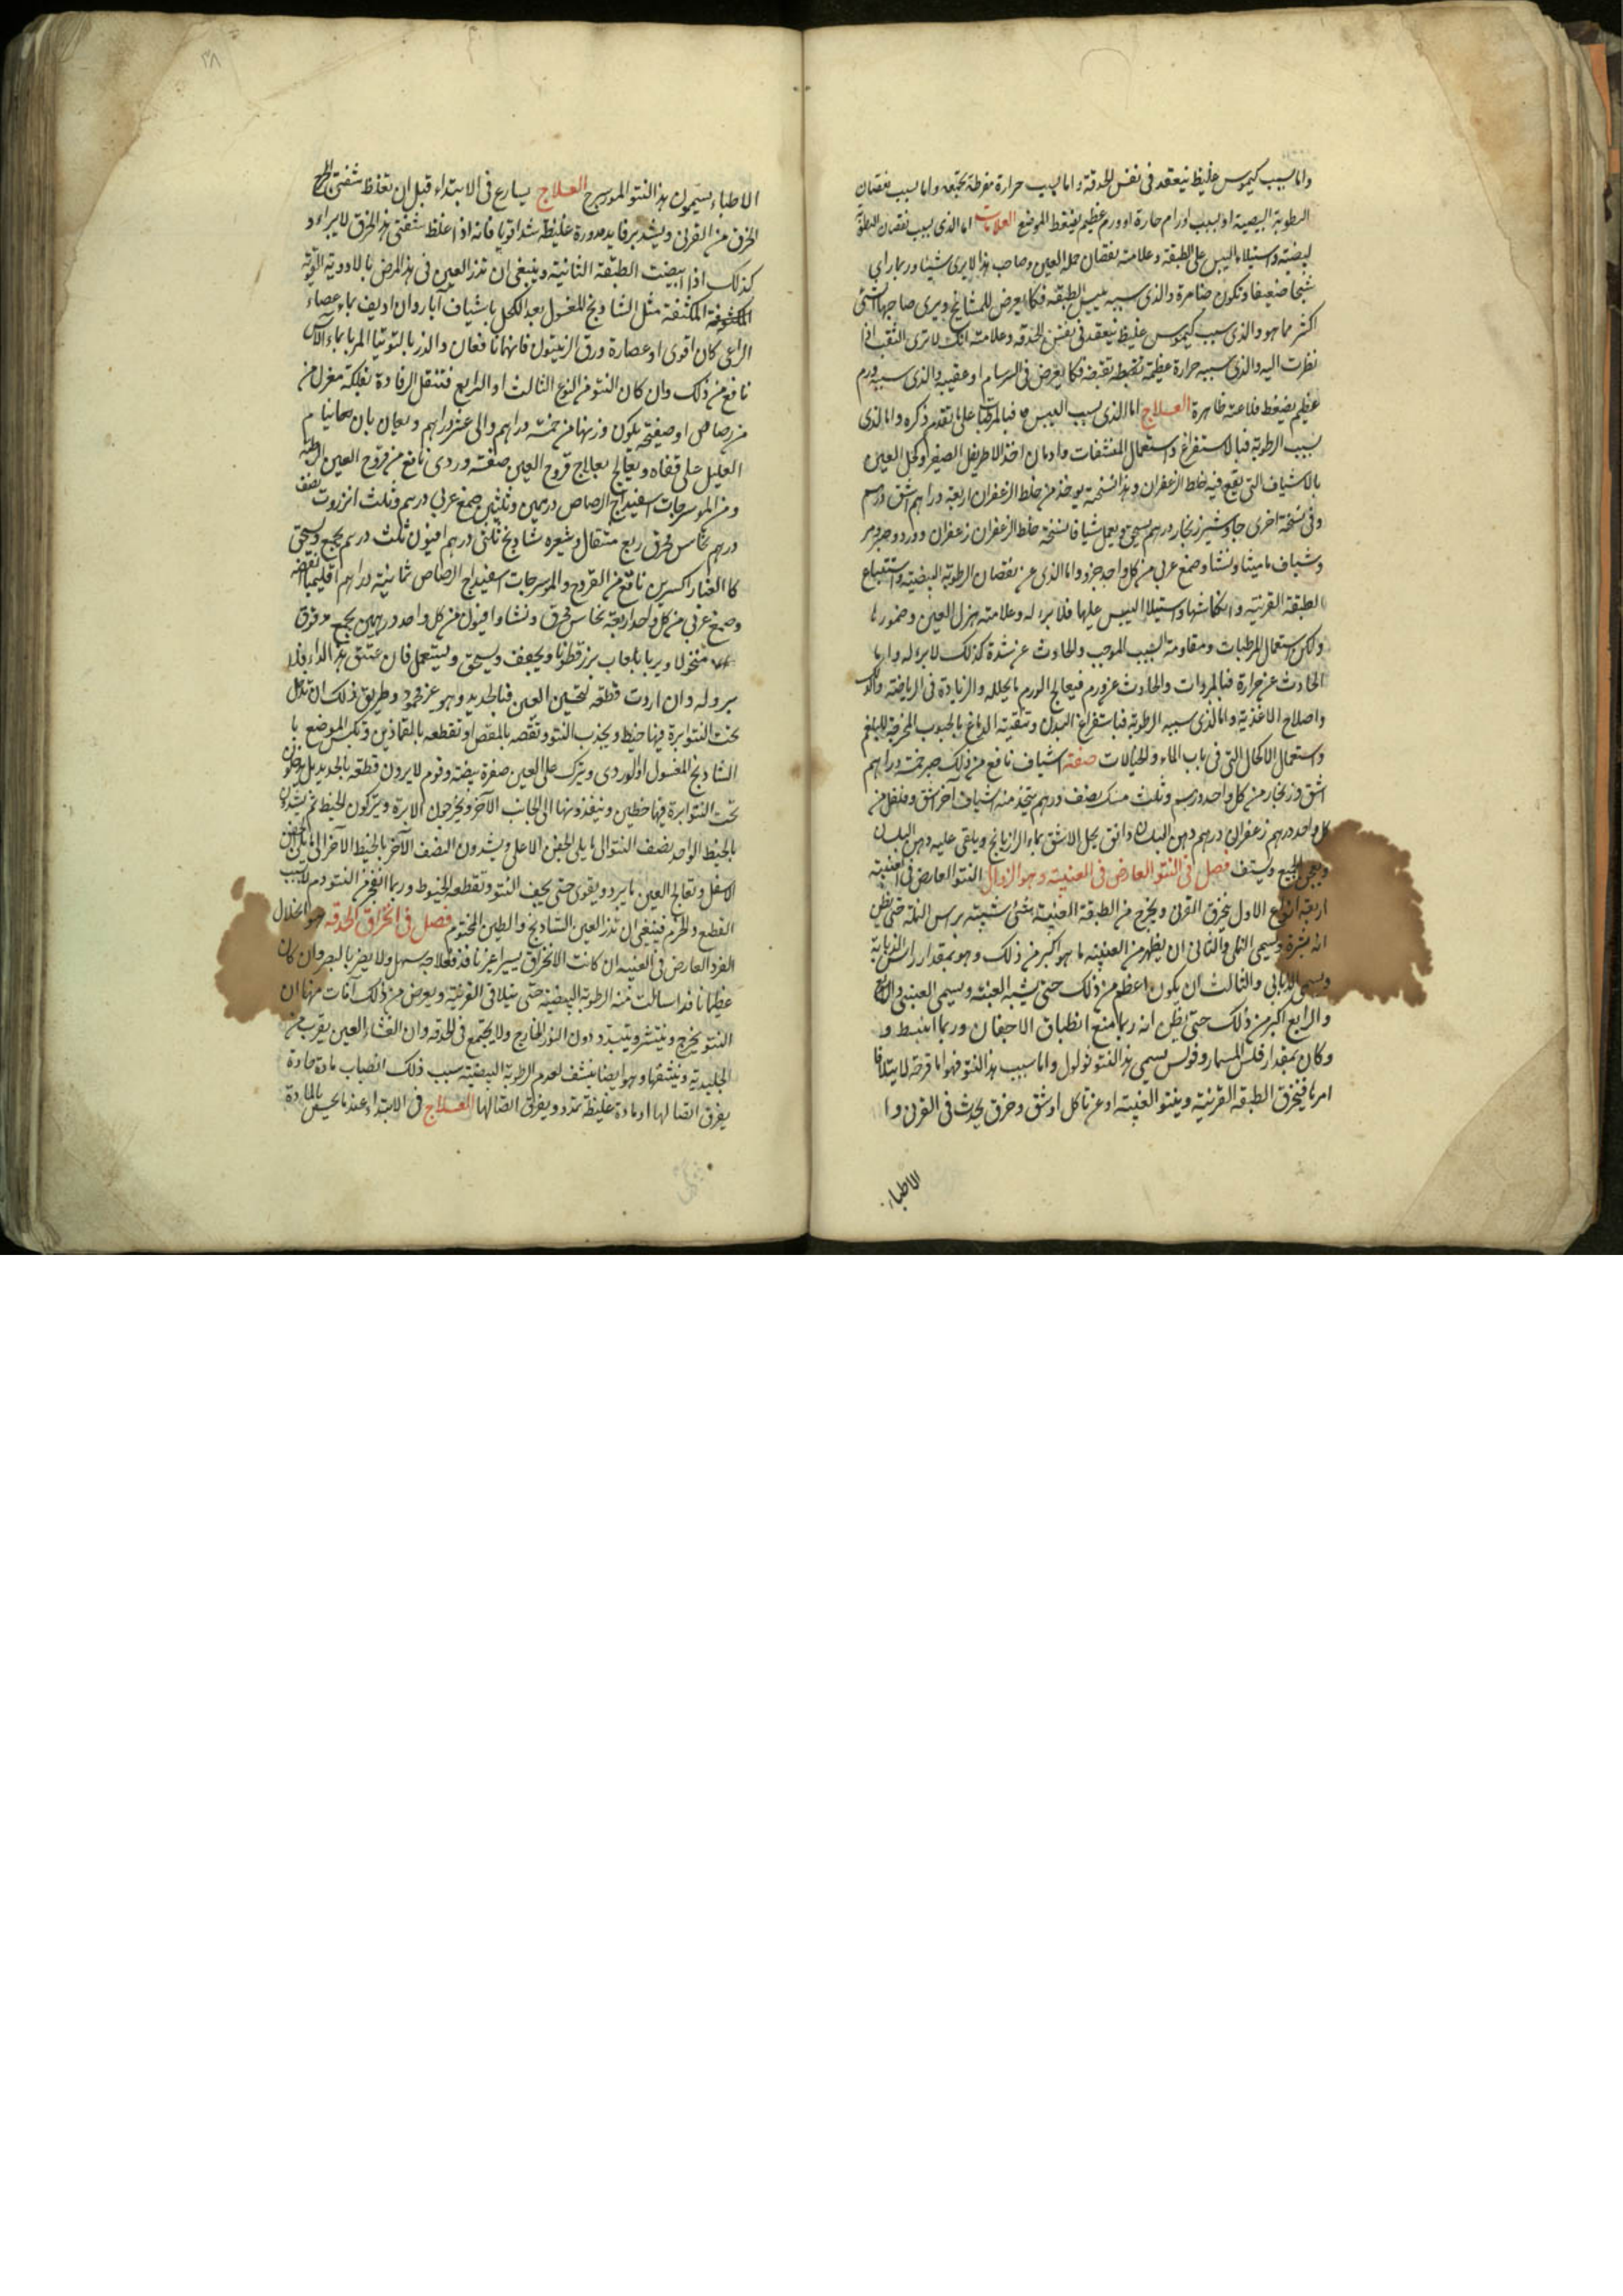 واما بسبب كيموس غليظ ينعقد فى نفس الحدقة واما بسبب حرارة مفرطة مجففه واما بسبب نقصان
الرطوبة البيضية او بسبب اورام حارة او ورم عظيم يضغط الموضع العلامات اما الذى بسبب نقصان الرطوبة
البيضية واستيلاء اليبس على الطبقة وعلامته نقصان جملة العين وصاحب هذا لا يرى شيئا وربما راى
شبحا ضعيفا وتكون ضامرة والذى سببه يبس الطبقه فكما يعرض للمشايخ ويرى صاحبها الشئ
اكثر مما هو والذى بسبب كيموس غليظ ينعقد فى نفس الحدقه وعلامته انك لا ترى الثقب اذا
نظرت اليه والذى سببه حرارة عظيمة تقبضه فكما يعرض فى السرسام او عقيبه والذى سببه ورم
عظيم يضغط فعلامته ظاهرة العـلاج اما الذى بسبب اليبس فبالمرطبات على ما تقدم ذكره واما الذى
بسبب الرطوبة فبالاستفراغ واستعمال المنشفات وادمان اخذ الاطريفل الصغير وكحل العين
بالاشياف التى يقع فيه خلط الزعفران وهذا نسخته يوخذ من خلط الزعفران اربعة دراهم اشق درهم
وفى نسخة اخرى جاوشير زنجار درهم يسحق ويعمل شيافا نسخة خلط الزعفران زعفران وورد ومر
وشياف ماميثا ونشا وصمغ عربى من كل واحد جزو واما الذى عن نقصان الرطوبة البيضية واستتباع
الطبقة القرنية وانكماشها واستيلا اليبس عليها فلا برء له وعلامته هزل العين وضمورها
ولكن استعمال المرطبات ومقاومة السبب الموجب والحادث عن شدة كذلك لا برء له واما
الحادث عن حرارة فبالمبردات والحادث عن ورم فيعالج الورم بما يحلله والزيادة فى الرياضة والدلك
واصلاح الاغذية واما الذى سببه الرطوبة فباستفراغ البدن وتنقية الدماغ بالحبوب المخرجة للبلغم
واستعمال الاكحال التى فى باب الماء والخيالات صفة اشياف نافع من ذلك صبر خمسة دراهم
اشق وزنجار من كل واحد درهم وثلث مسك نصف درهم يتخذ منه اشياف آخر اشق وفلفل من
كل واحد درهم زعفران درهم دهن البلسان دانق يحل الاشق بماء الرازيانج ويلقى عليه دهن البلسان
ويعجن الجميع ويشيف فصل فى النتو العارض فى العنبية وهو الزوال النتو العارض فى العنبية
اربعة انواع الاول ينخرق القرنى ويخرج من الطبقة العنبية شئ شبيه براس النملة حتى يظن
انه بثرة ويسمى النملى والثانى ان يظهر من العنبية ما هو اكبر من ذلك وهو بمقدار راس الذبابة
ويسمى الذبابى والثالث ان يكون اعظم من ذلك حتى يشبه العنبة ويسمى العنبى والرابع
والرابع اكبر من ذلك حتى يظن انه ربما منع انطباق الاجفان وربما انبسط و
وكان بمقدار فلس المسمار وفولس يسمى هذا النتو ثولول واما سبب هذا النتو فهو اما قرحة
امرها فينخرق الطبقه القرنية وينتو العنبية او عن تاكل او شق وخرق يحدث فى القرنى وا
الاطباء
٣٨
الاطباء يسمون هذا النتو المورسرج العـلاج يسارع فى الابتداء قبل ان تغلظ شفتى
الخرق من القرنى ويشد برفايد مدورة غليظة شدا قويا فانه اذا غلظ شفتى هذا الخرق لا يبراء و
كذلك اذا ابيضت الطبقة الثانية وينبغى ان تذر العين فى هذا المرض بالادوية القوية
المكثفة مثل الشادنج المغسول بعد الكحل باشياف آبار وان اديف بماء عصاء
الراعى كان اقوى او عصارة ورق الزيتون فانهما نافعان والذر بالتوتيا المربا بماء الآس
نافع من ذلك وان كان النتو من النوع الثالث او الرابع فتنقل الرفادة بفلكة مغزل من
من رصاص او صفيحة يكون وزنها من خمسة دراهم والى عشر دراهم ويعان بان
العليل على قفاه ويعالج بعلاج قروح العين صفة وردى نافع من قروح العين الرطبة
ومن الموسرجات اسفيداج الرصاص درهمين وثلثين صمغ عربى درهم وثلث انزروت نصف
درهم نحاس محرق ربع مثقال وشعيره شادنج ثلثى درهم افيون ثلث درهم يجمع ويسحق
كالغبار اكسيرين نافع من القروح والموسرجات اسفيداج الرصاص ثمانية دراهم اقليميا الفضه
وصمغ عربى من كل واحد اربعة نحاس محرق ونشا وافيون من كل واحد درهمين يجمع مدقوق
منخولا ويربا بلعاب بزر قطونا ويجفف ويسحق ويستعمل فان عتق هذا الداء فلا
برو له وان اردت قطعه لتحسين العين فبالحديد وهو غير محمود وطريق ذلك ان تدخل
تحت النتو ابرة فيها خيط ويجذب النتو وتقصه بالمقص او تقطعه بالقمادين وتكبس الموضع با
الشادنج المغسول او الوردى ويترك على العين صفرة بيضة وقوم لا يرون قطعه بالحديد بل يدخلون
تحت النتو ابرة فيها خيطين وينفذونها الى الجانب الآخر ويخرجون الابرة ويتركون الخيط ثم يشدون
بالخيط الواحد نصف النتو الى ما يلى الجفن الاعلى ويشدون النصف الآخر بالخيط الآخر الى ما يلى الجفن
الاسفل وتعالج العين بما يبرد ويقوى حتى يجف النتو وتقطعه الخيوط وربما انفجر من النتو دم لسبب
القطع والخرم فينبغى ان تذر العين الشادنج والطين المختوم فصل فى انخراق الحدقه هو انحلال
الفرد العارض فى العنبيه ان كانت الانخراق يسيرا غير نافذ فعلاجه سهل ولا يضر بالبصر وان كان
عظيما نافذا سالت منه الرطوبة البيضية حتى يتلاقى القرنية ويعرض من ذلك آفات منها ان
النتو يخرج وينتشر ويتبدد دون النور الخارج ولا يجتمع فى الحدقه وان الغشاء العين يقرب من
الجليدية وينشفها وهو ايضا ينشف لعدم الرطوبة البيضية سبب ذلك انصباب مادة حادة
يفرق اتصالها او مادة غليظة تمدد ويفرق اتصالها العـلاج فى الابتداء عندما يحس بالمادة